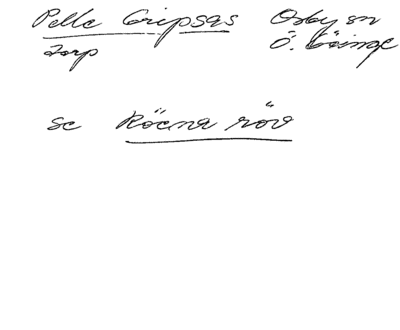 Pelle Gripsas Osby sn
torp Ö. Göinge
se Röena röv